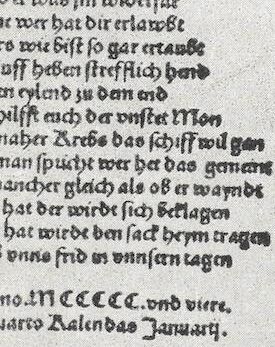 hat dir erlawbt
wie bist so gar ertaubt
uff heben strefflich hend
eylend zu dem end
hilfft euch der vnstet Mon
naher Krebs das schiff wil gan
man spricht wer het das gemeint
mancher gleich als ob er wayndt
hat der wirdt sich beklagen
hat wirdt den sack heym tragen
vnns frid in vnnsern tagen
no. M CCCCC. vnd viere.
uarto Kalendas Januarij.